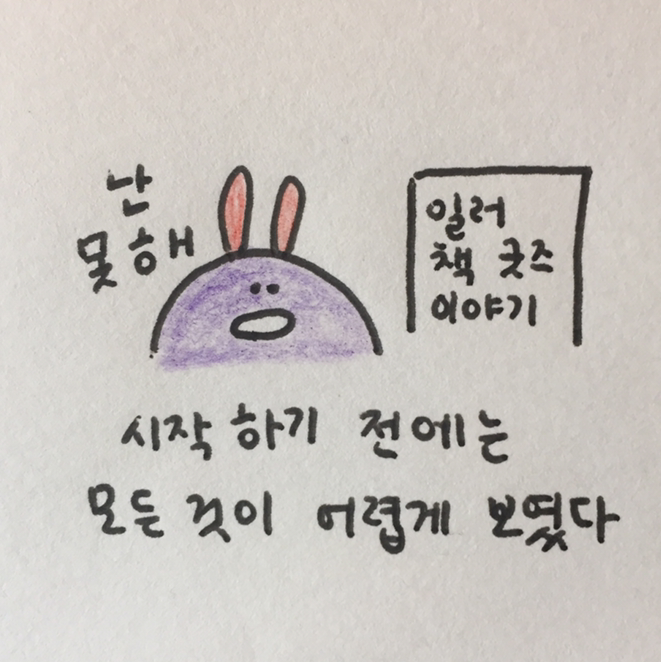 난
못해
일러
책 굿즈
이야기
시작 하기 전에는
모든 것이 어렵게 보였다